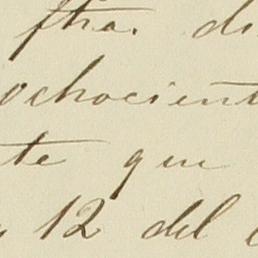 ftra. di
ochocient
te que
12 del